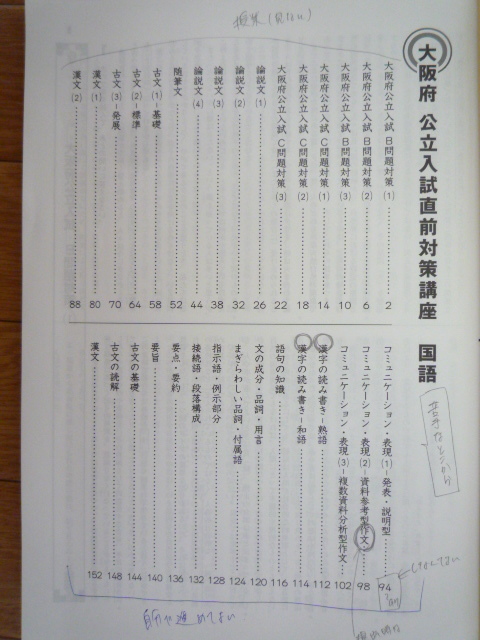 大阪府 公立入試直前対策講座 国語
大阪府公立入試B問題対策(1) 2
大阪府公立入試B問題対策(2) 6
大阪府公立入試B問題対策(3) 10
大阪府公立入試C問題対策(1) 14
大阪府公立入試C問題対策(2) 18
大阪府公立入試C問題対策(3) 22
論説文(1) 26
論説文(2) 32
論説文(3) 38
論説文(4) 44
随筆文 52
古文(1)―基礎 58
古文(2)―標準 64
古文(3)―発展 70
漢文(1) 80
漢文(2) 88
コミュニケーション・表現(1)―発表・説明型 94
コミュニケーション・表現(2)―資料参考型作文 98
コミュニケーション・表現(3)―複数資料分析型作文 102
漢字の読み書き―熟語 112
漢字の読み書き―和語 114
語句の知識 116
文の成分・品詞・用言 120
まぎらわしい品詞・付属語 124
指示語・例示部分 128
接続語・段落構成 132
要点・要約 136
要旨 140
古文の基礎 144
古文の読解 148
漢文 152
苦手なところから
自分で進めてよい